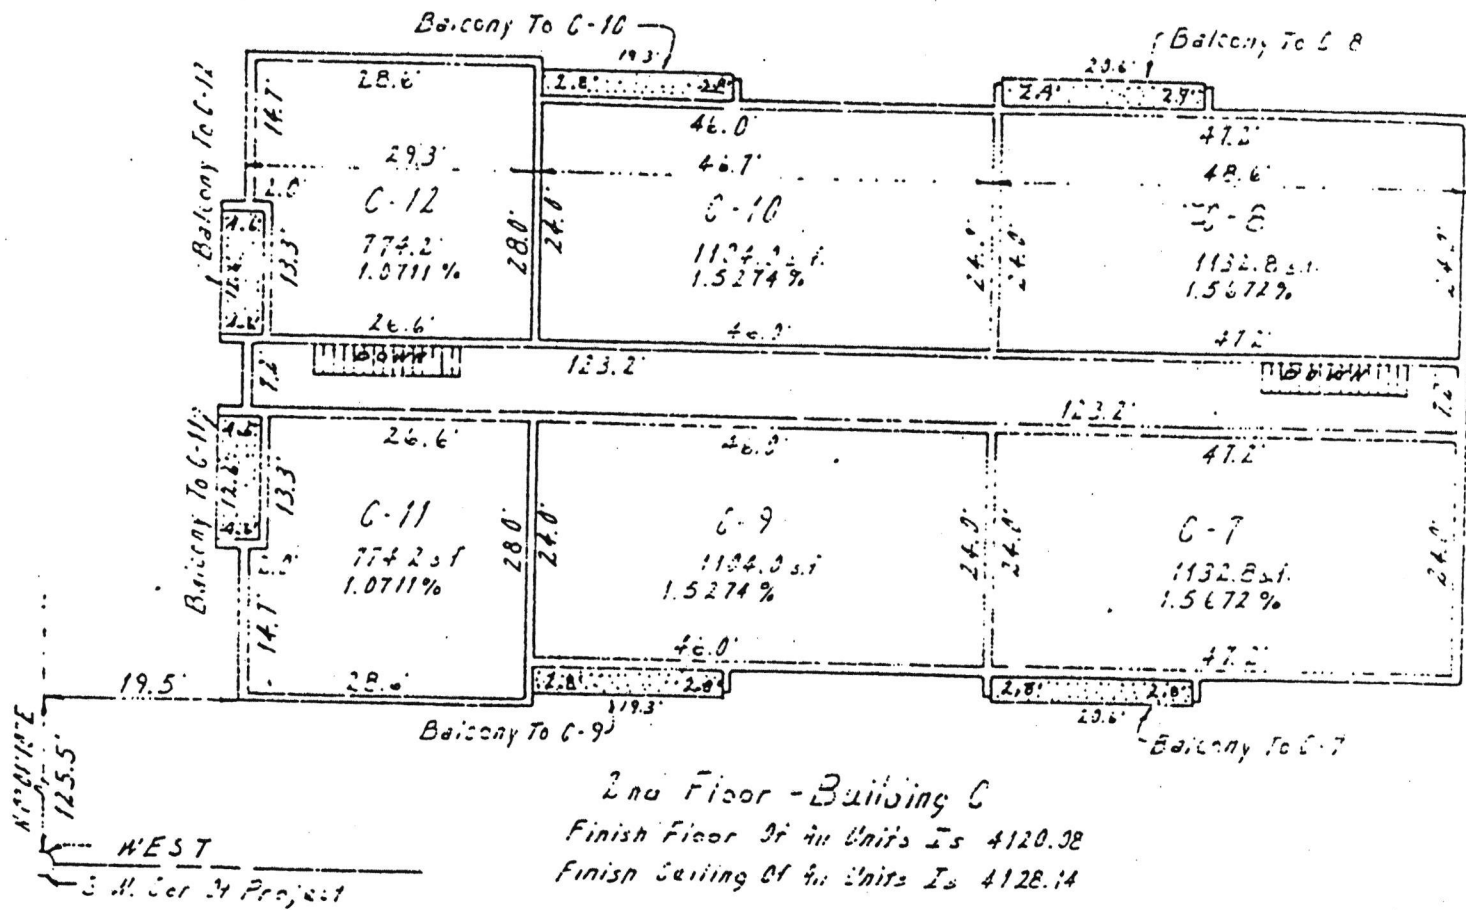 Balcony To C-10
19.3'
Balcony To C-8
20.6'
Balcony To C-12
14.7'
28.6'
2.8'
2.8'
2.9'
46.0'
47.2'
29.3'
46.7'
48.6'
2.0'
C-12
C-10
C-8
4.6'
12.6'
4.6'
13.3'
774.2
1.0711%
28.0'
24.0'
1104.0 s.f.
1.5274%
24.0'
24.0'
1132.8 s.f.
1.5672%
24.0'
26.6'
46.0'
47.2'
DOWN
DOWN
7.2'
123.2'
123.2'
7.2'
Balcony To C-11
4.6'
12.6'
4.6'
13.3'
26.6'
46.0'
47.2'
C-11
774.2 s.f
1.0711%
28.0'
24.0'
C-9
1104.0 s.f
1.5274%
24.0'
24.0'
C-7
1132.8 s.f.
1.5672%
24.0'
14.7'
28.6'
46.0'
47.2'
2.8'
2.8'
19.3'
2.8'
2.8'
20.6'
19.5'
Balcony To C-9
Balcony To C-7
125.5'
WEST
S.W. Cor Of Project
2nd Floor - Building C
Finish Floor Of All Units Is 4120.08
Finish Ceiling Of All Units Is 4128.14